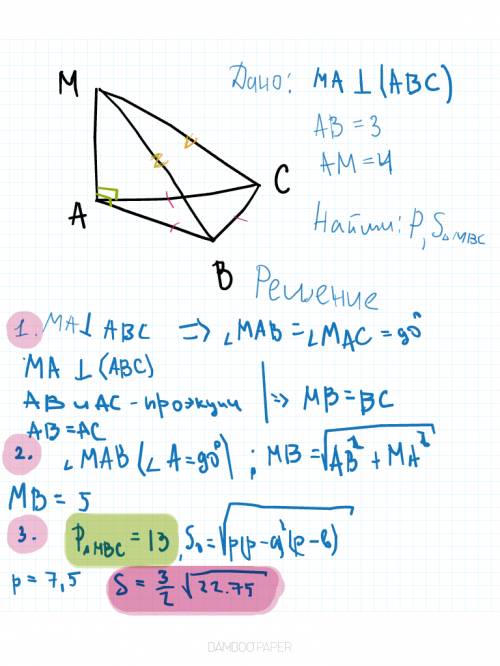 M
Дано: MA ⊥ (ABC)
AB = 3
AM = 4
A
C
Найти: P, S△MBC
B
Решение
1. MA⊥ ABC => ∠MAB = ∠MAC = 90°
MA ⊥ (ABC)
AB и AC - проэкции => MB = BC
AB = AC
2. ∠MAB (∠A = 90°) ; MB = √AB² + MA²
MB = 5
3. P△MBC = 13 , S△ = √p(p-a)²(p-b)
p = 7,5 S = 3/2 √22.75
BAMBOO PAPER